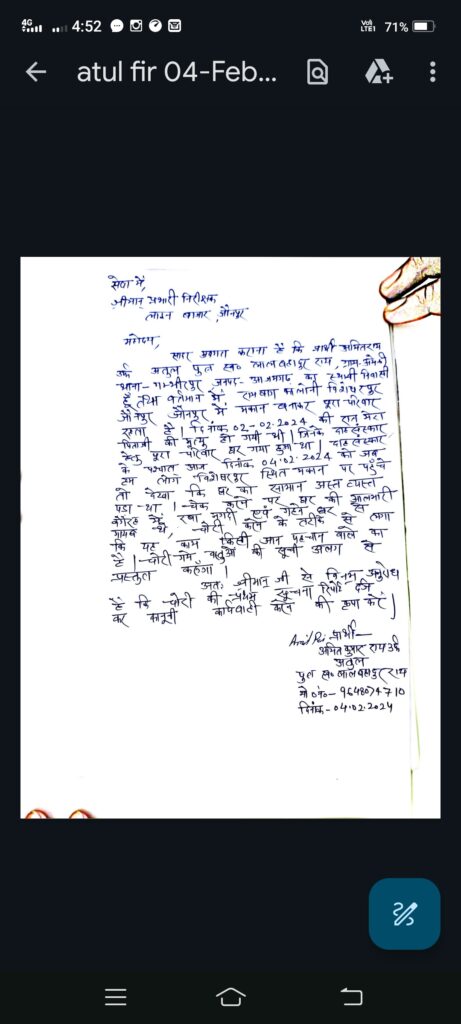 4G 4:52 VoLTE1 71%
atul fir 04-Feb...
सेवा में,
श्रीमान् प्रभारी निरीक्षक
लाइन बाजार, जौनपुर
महोदय,
सादर अवगत कराना है कि प्रार्थी अमित राय
उर्फ अतुल पुत्र स्व० लाल बहादुर राय, ग्राम-
थाना- गम्भीरपुर जनपद- आजमगढ़ का स्थायी निवासी
है तथा वर्तमान में कालोनी विशेषरपुर
जौनपुर जौनपुर में मकान बनाकर पूरा परिवार
रहता है। दिनांक 02-02.2024 की रात मेरा
पिताजी की मृत्यु हो गयी थी। जिनके दाह संस्कार
हेतु पूरा परिवार घर गया हुआ था। दाह संस्कार
के पश्चात आज दिनांक 04.02.2024 को जब
हम लोग विशेषरपुर स्थित मकान पर पहुँचे
तो देखा कि घर का सामान अस्त व्यस्त
पड़ा था। चेक करने पर घर की आलमारी
वगैरह में रखा नगदी एवं गहने घर से
गायब थे, चोरी करने के तरीके से लगा
कि यह काम किसी जान पहचान वाले का
है। चोरी गये वस्तुओं की सूची अलग से
प्रस्तुत करूँगा।
अतः श्रीमान् जी से विनम्र अनुरोध
है कि चोरी की प्रथम सूचना रिपोर्ट दर्ज
कर कानूनी कार्यवाही करने की कृपा करें।
प्रार्थी-
अमित कुमार राय उर्फ
अतुल
पुत्र स्व० लाल बहादुर राय
मो०नं०- 9648074710
दिनांक- 04.02.2024